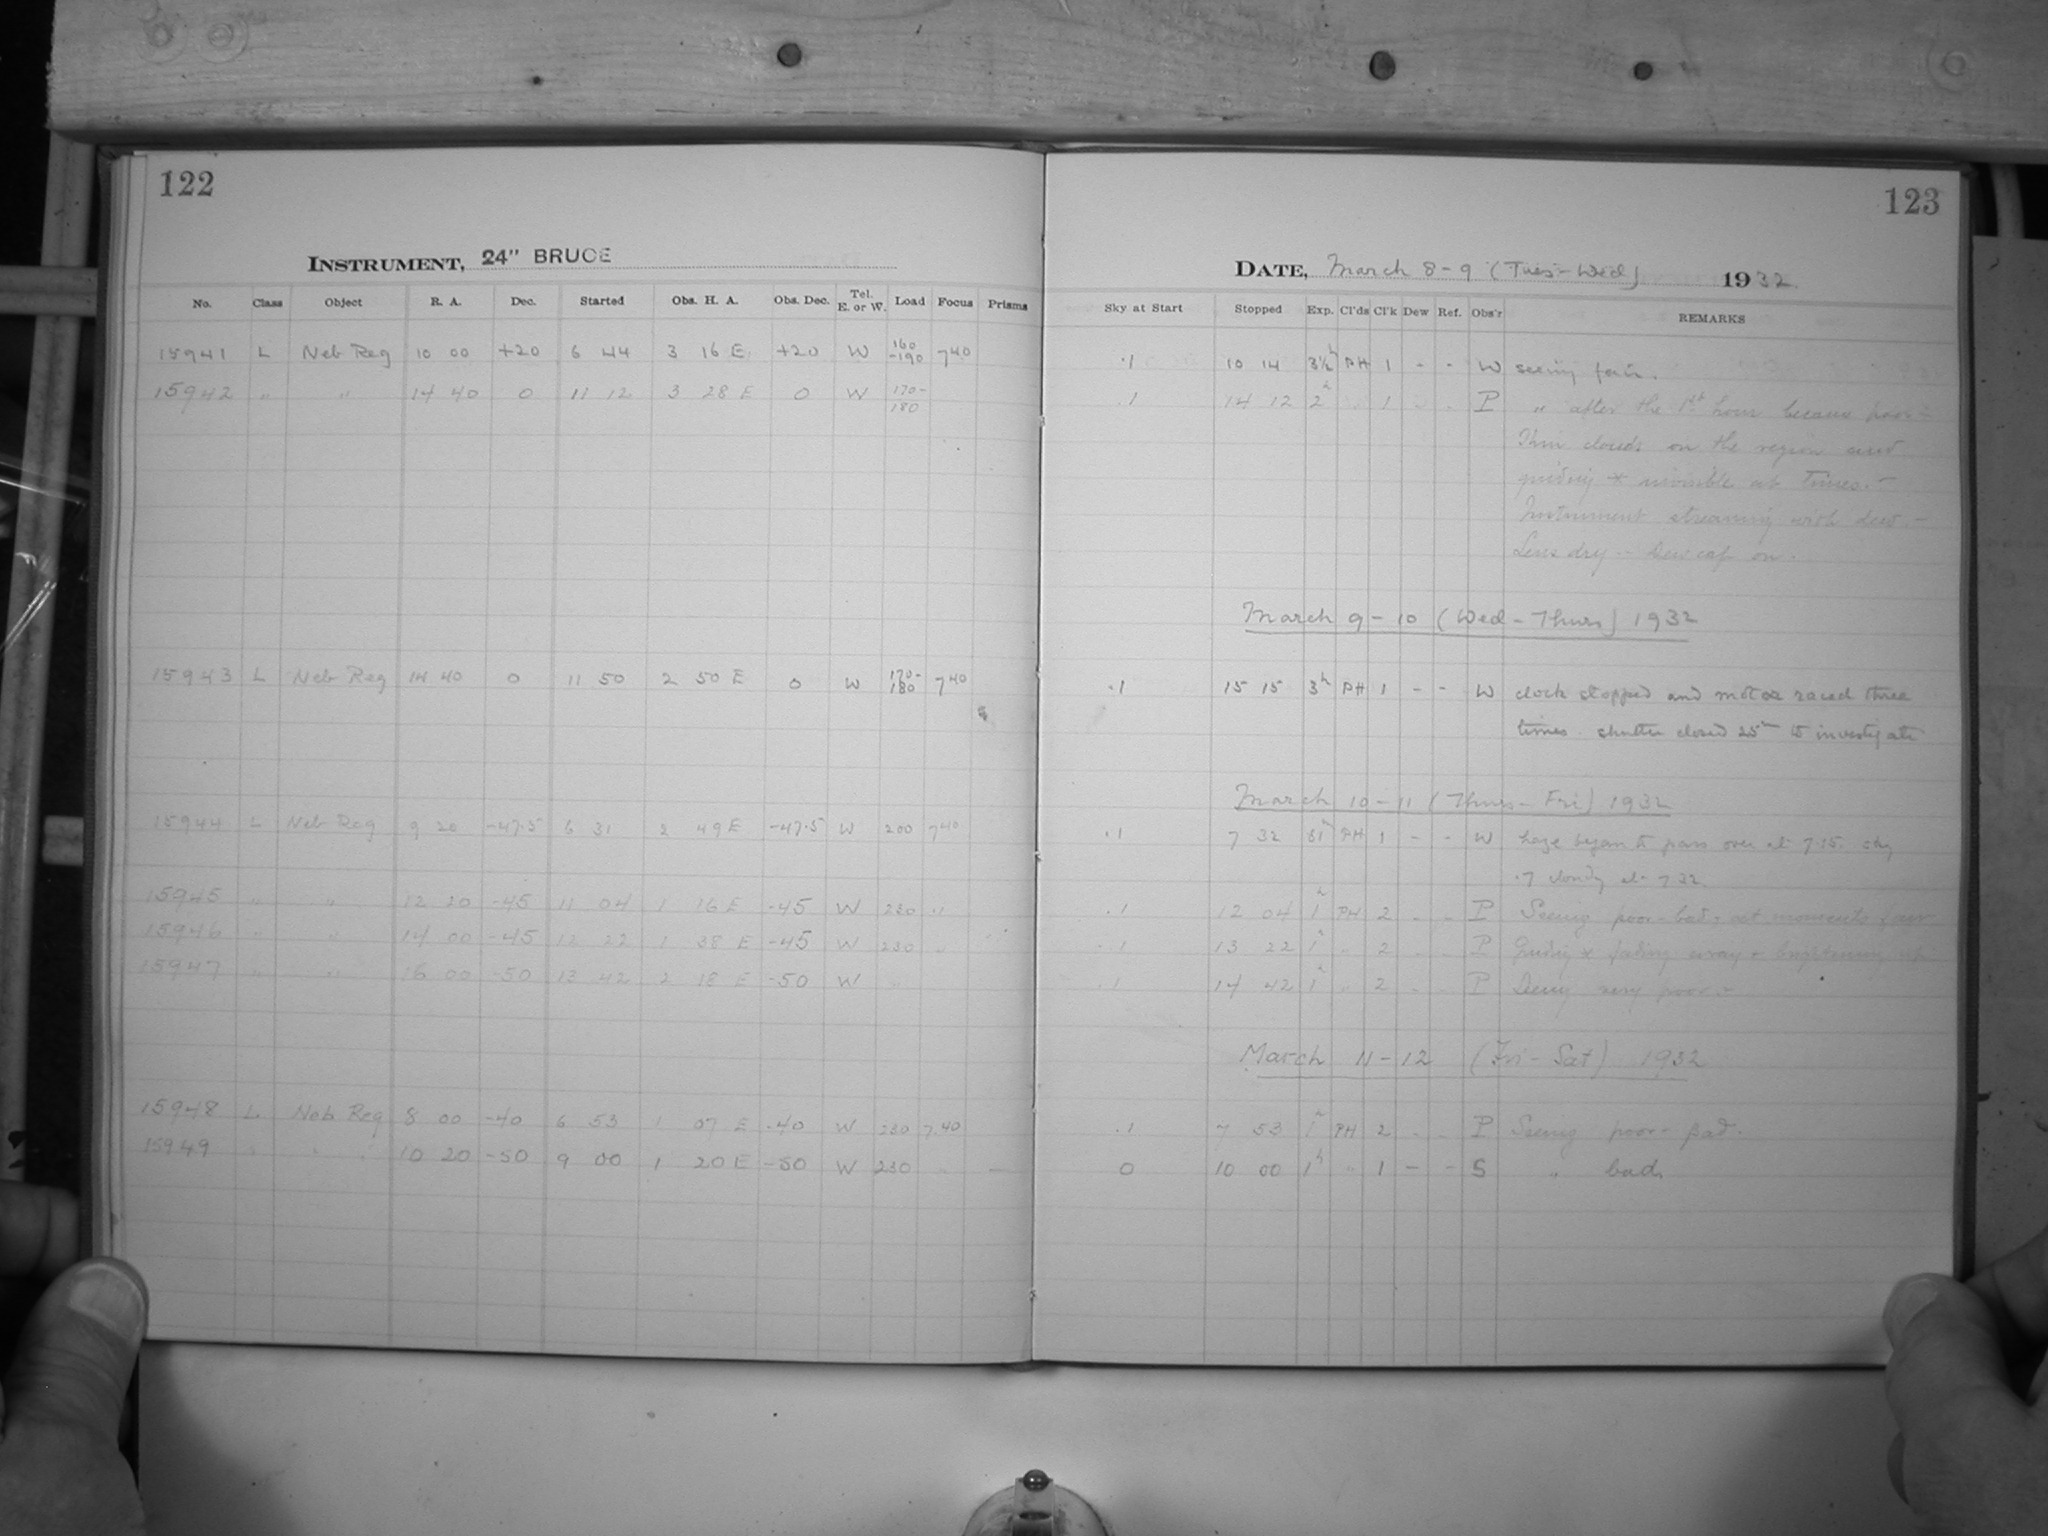 122
INSTRUMENT, 24" BRUCE
No. Class Object R. A. Dec. Started Obs. H. A. Obs. Dec. Tel. E. or W. Load Focus Prisms
15941 L Neb Reg 10 00 +20 6 44 3 16 E +20 W 160-190 740
15942 " " 14 40 0 11 12 3 28 E 0 W 170-180
15943 L Neb Reg 14 40 0 11 50 2 50 E 0 W 170-180 740
15944 L Neb Reg 9 20 -47.5 6 31 2 49 E -47.5 W 200 740
15945 " " 12 20 -45 11 04 1 16 E -45 W 230 "
15946 " " 14 00 -45 12 22 1 38 E -45 W 230 "
15947 " " 16 00 -50 13 42 2 18 E -50 W "
15948 L Neb Reg 8 00 -40 6 53 1 07 E -40 W 230 7.40
15949 " " 10 20 -50 9 00 1 20 E -50 W 230 " —
123
DATE, March 8-9 (Tues-Wed) 1932
Sky at Start Stopped Exp. Cl'ds Cl'k Dew Ref. Obs'r REMARKS
.1 10 14 3½h PH 1 - - W seeing fair.
.1 14 12 2h " 1 - - P " after the 1st hour became poor -
Thin clouds on the region
guiding * invisible at times. -
Instrument streaming with dew. -
Lens dry - Dew cap on.
March 9-10 (Wed-Thurs) 1932
.1 15 15 3h PH 1 - - W clock stopped and motor raced three
times. shutter closed 25m to investigate
March 10-11 (Thurs-Fri) 1932
.1 7 32 PH 1 - - W haze began to pass over at 7.15. sky
.7 cloudy at 7.32
.1 12 04 1h PH 2 - - P Seeing poor-bad, at moments fair
.1 13 22 1h " 2 - - P Guiding * fading away + brightening up
.1 14 42 1h " 2 - - P very poor. -
March 11-12 (Fri-Sat) 1932
.1 7 53 1h PH 2 - - P Seeing poor - bad.
0 10 00 1h " 1 - - S " bad.